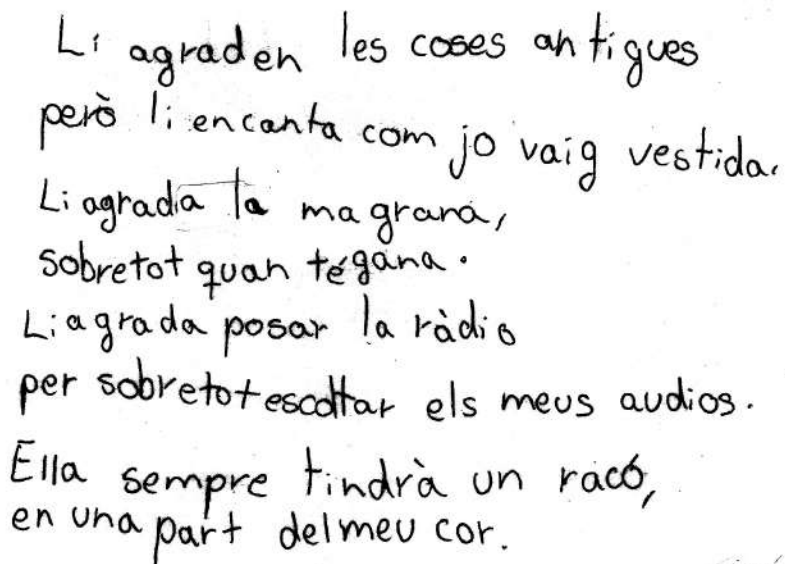 Li agraden les coses antigues
però li encanta com jo vaig vestida.
Li agrada la magrana,
sobretot quan té gana.
Li agrada posar la ràdio
per sobretot escoltar els meus audios.
Ella sempre tindrà un racó,
en una part del meu cor.